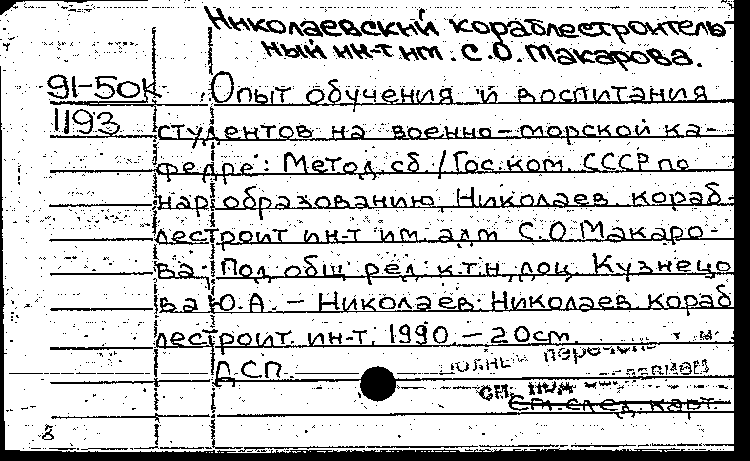 Николаевский кораблестроитель-
ный ин-т им. С.О. Макарова.
91-50к Опыт обучения и воспитания
1193 студентов на военно-морской ка-
федре: Метод. сб. / Гос. ком. СССР по
нар. образованию, Николаев. кораб-
лестроит. ин-т им. адм. С.О. Макаро-
ва; Под общ. ред. к.т.н., доц. Кузнецо
ва Ю.А. - Николаев: Николаев. кораб
лестроит. ин-т, 1990 - 20 см.
перечень
ДСП.
см. под
См. след. карт.